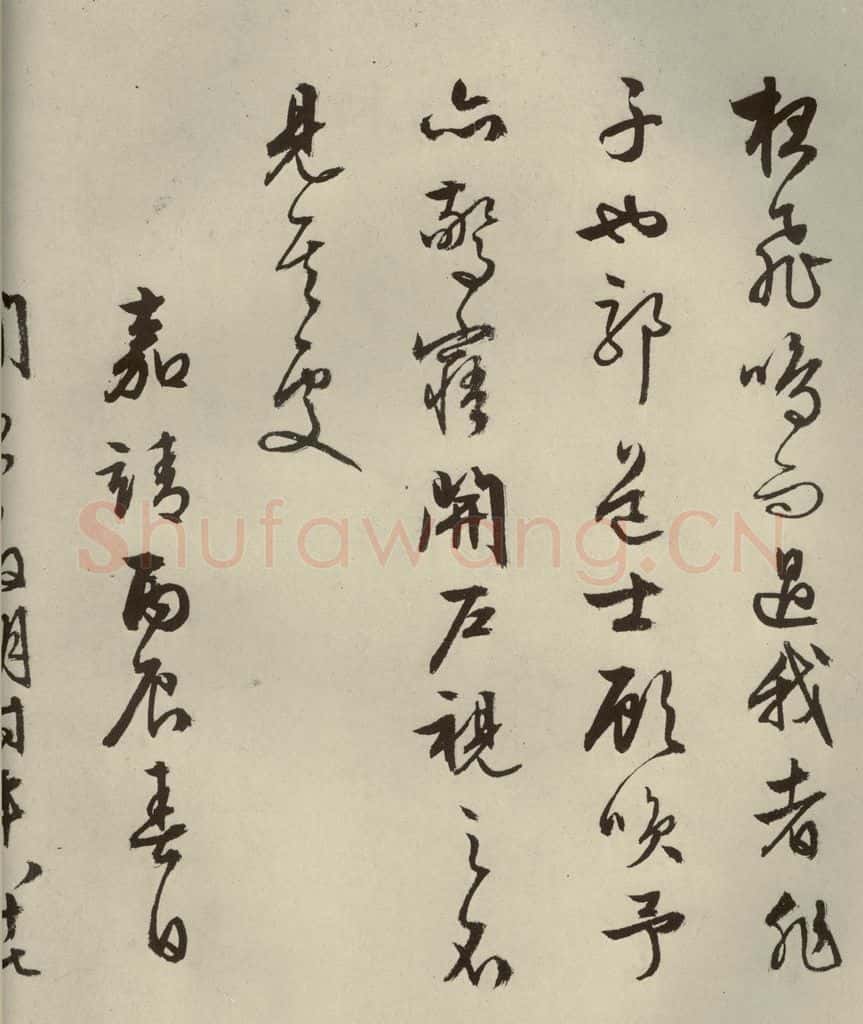 夜飛鳴而過我者非
子也耶道士顧咲予
亦驚寤開戶視之不
見其處
嘉靖丙辰春日
明時年八十七
Shufawang.CN